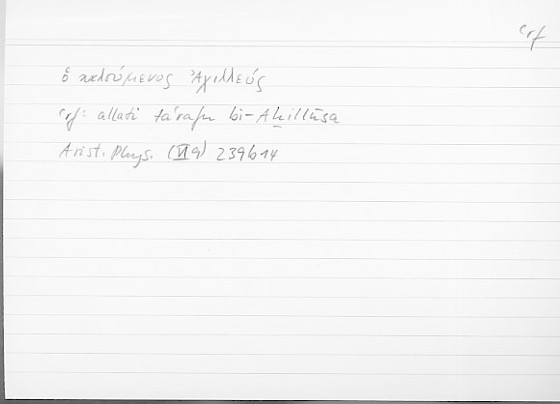 ʿrf
ὁ καλούμενος Ἀχιλλεύς
ʿrf: allatī tuʿrafu bi-Aḫillūsa
Arist. Phys. (VI 9) 239b14